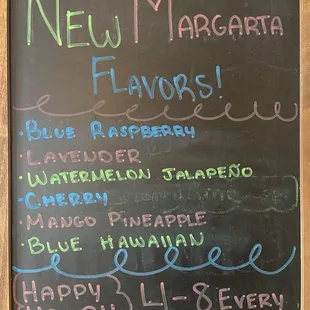 New Margarta
Flavors!
· Blue Raspberry
· Lavender
· Watermelon Jalapeño
· Cherry
· Mango Pineapple
· Blue Hawaiian
Happy 4-8 Every